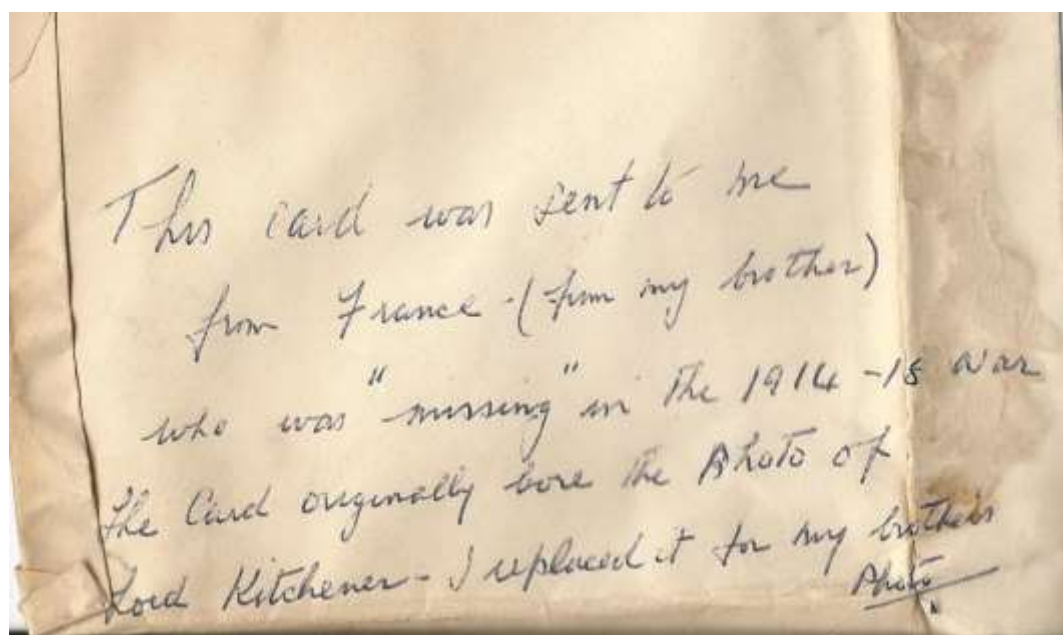 This card was sent to me
from France - (from my brother)
who was "missing" in the 1914-18 war
The Card originally bore the Photo of
Lord Kitchener - I replaced it for my brothers
Photo.